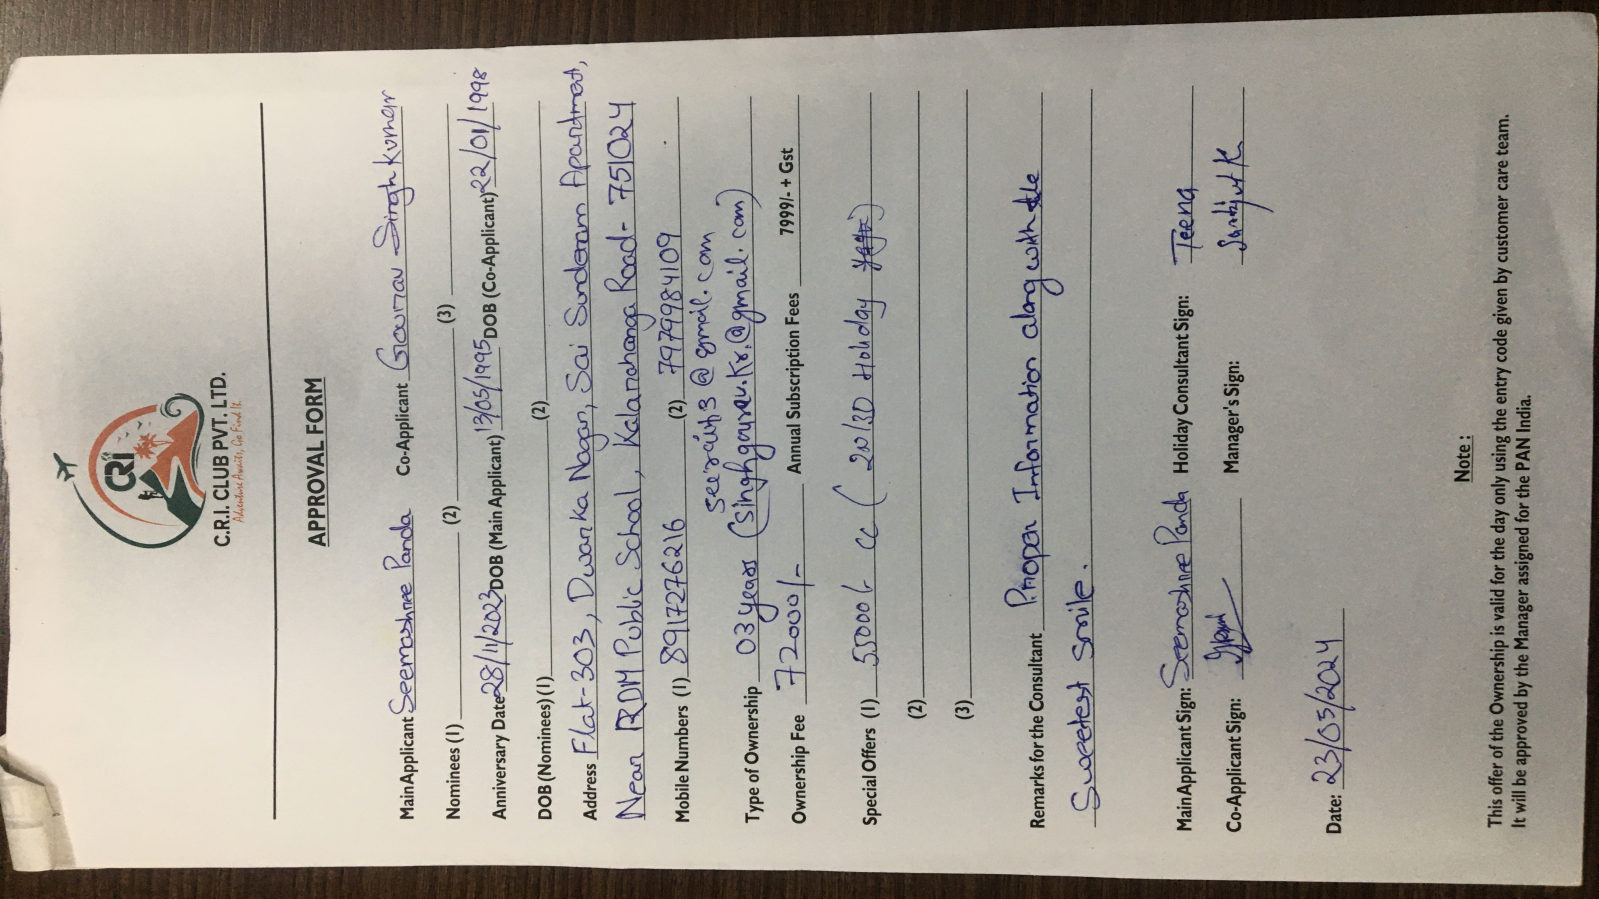 CRI
C.R.I. CLUB PVT. LTD.
Adventure Awaits, Go Find It.
APPROVAL FORM
Main Applicant Seemashree Panda Co-Applicant Gourav Singh Kumar
Nominees (1) (2) (3)
Anniversary Date 28/11/2023 DOB (Main Applicant) 13/05/1995 DOB (Co-Applicant) 22/01/1998
DOB (Nominees) (1) (2)
Address Flat-303, Dwarika Nagar, Sai Sunderam Apartment,
Near RDM Public School, Kalarahanga Road- 751024
Mobile Numbers (1) 8917276216 (2) 7979984109
@gmail.com
Type of Ownership 03 years (singhgourav.kr.@gmail.com)
Ownership Fee 72000/- Annual Subscription Fees 7999/- + Gst
Special Offers (1) 55000/- CC (2N/3D Holiday)
(2)
(3)
Remarks for the Consultant Proper Information along with the
Sweetest Smile.
Main Applicant Sign: Seemashree Panda Holiday Consultant Sign: Teena
Co-Applicant Sign: Manager's Sign:
Date: 23/03/2024
Note :
This offer of the Ownership is valid for the day only using the entry code given by customer care team.
It will be approved by the Manager assigned for the PAN India.